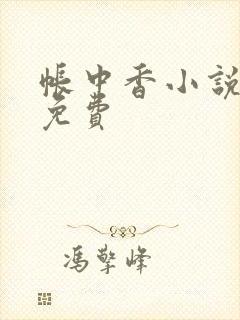 帳中香小說
免費
馮擎峰